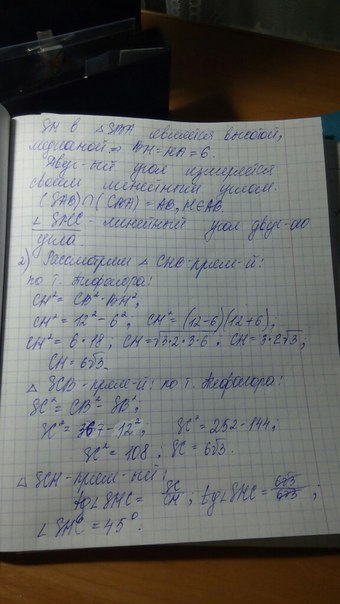 SH в △SBA является высотой,
медианой ⇒ BH=HA=6.
Двугр-ный угол измеряется
своим линейным углом.
(SAB)∩(CAA)=AB, H∈AB.
∠SHC - линейный угол двуг-го
угла
2) Рассмотрим △ CHB-прям-й:
по т. Пифагора:
CH²=CB²-BH²;
CH²=12²-6²; CH²=(12-6)(12+6);
CH²=6·18; CH=√3·2·3·6; CH=3·2√3;
CH=6√3.
△ SCB-прям-й: по т. Пифагора:
SC²=CB²-SB²;
SC²=367-12²; SC²=252-144;
SC²=108; SC=6√3.
△ SCH-прям-ный:
tg∠SHC= SC/CH; tg∠SHC= 6√3/6√3;
∠SHC=45°.